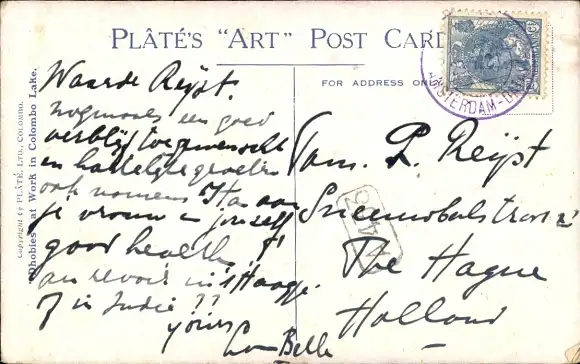 PLÂTÉ'S "ART" POST CARD
FOR ADDRESS ONLY
AMSTERDAM
Copyright by PLÂTÉ, LTD., COLOMBO.
"Dhobies" at Work in Colombo Lake.
Waarde Reijst.
nogmaals een goed
verblijf toegewenscht
en hartelijke groeten
ook namens
je vrouw en jezelf
good health
au revoir in 's Haage
of in Indië ??
yours
Belle
P. Reijst
The Hague
Holland